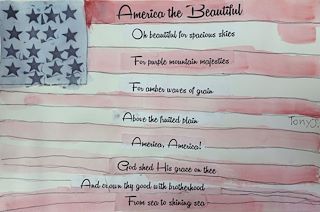 America the Beautiful
Oh beautiful for spacious skies
For purple mountain majesties
For amber waves of grain
Above the fruited plain
TonyJ.
America, America!
God shed His grace on thee
And crown thy good with brotherhood
From sea to shining sea